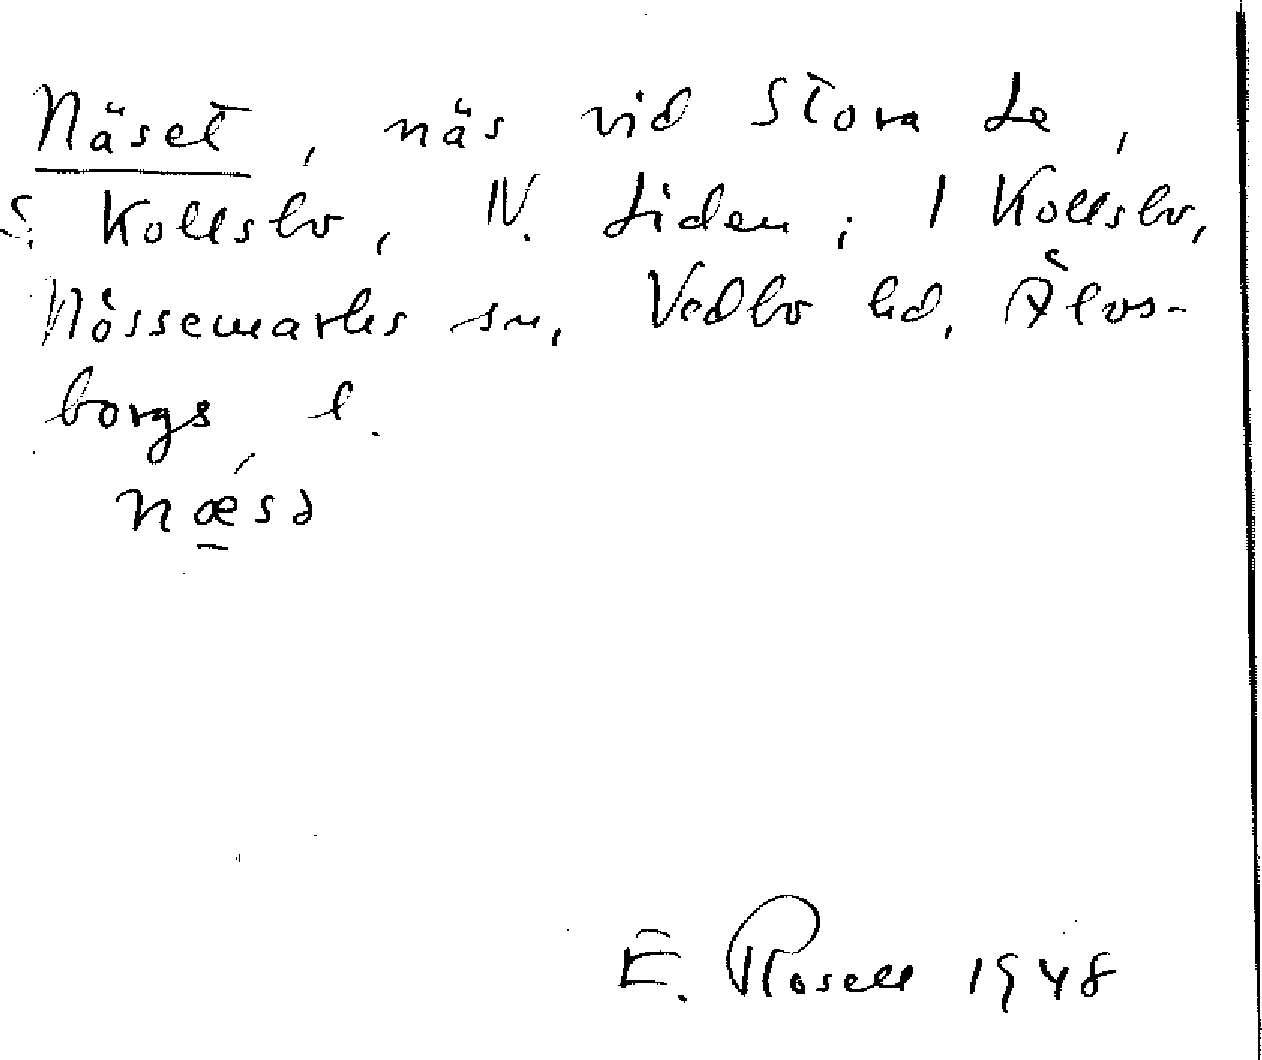 Näset, näs vid Stora Le,
S. Kollsbo, N. Liden; 1 Kollsbo,
Nössemarks sn, Vedbo hd, Älvs-
borgs l.
nǽ̱sə
E. Rosell 1948